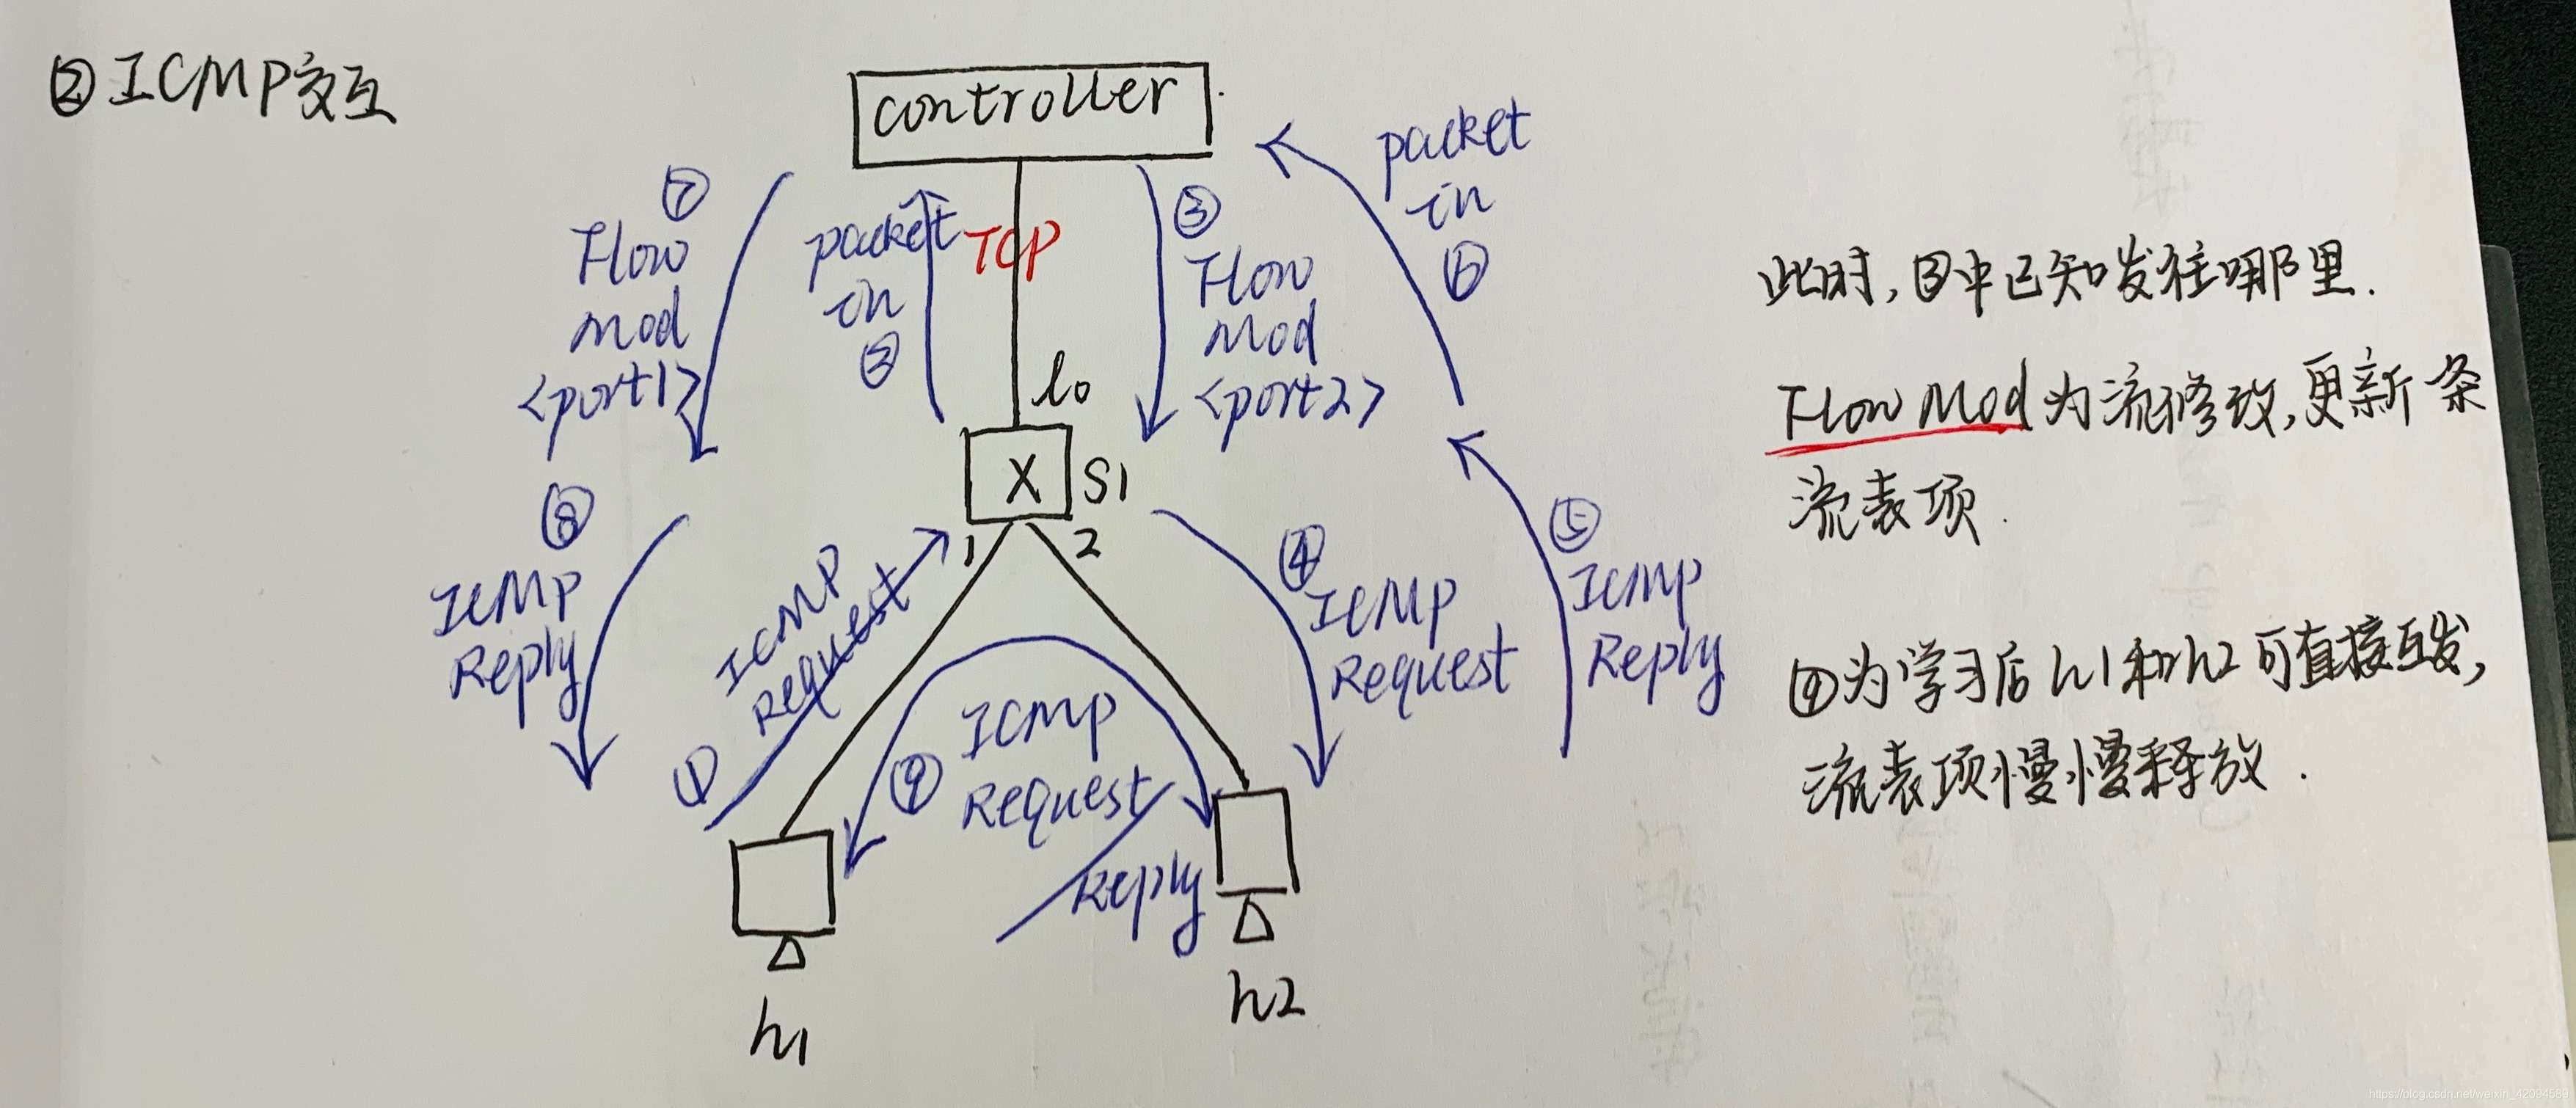 ②ICMP交互
controller
TCP
lo
S1
1
2
h1
h2
①
ICMP
Request
packet
in
②
③
Flow
Mod
<port2>
④
ICMP
Request
⑤
ICMP
Reply
packet
in
⑥
⑦
Flow
Mod
<port1>
⑧
ICMP
Reply
⑨
ICMP
Request
Reply
此时,③中已知发往哪里.
Flow Mod为流修改,更新一条
流表项.
⑨为学习后h1和h2可直接互发,
流表项慢慢释放.
https://blog.csdn.net/weixin_42094589